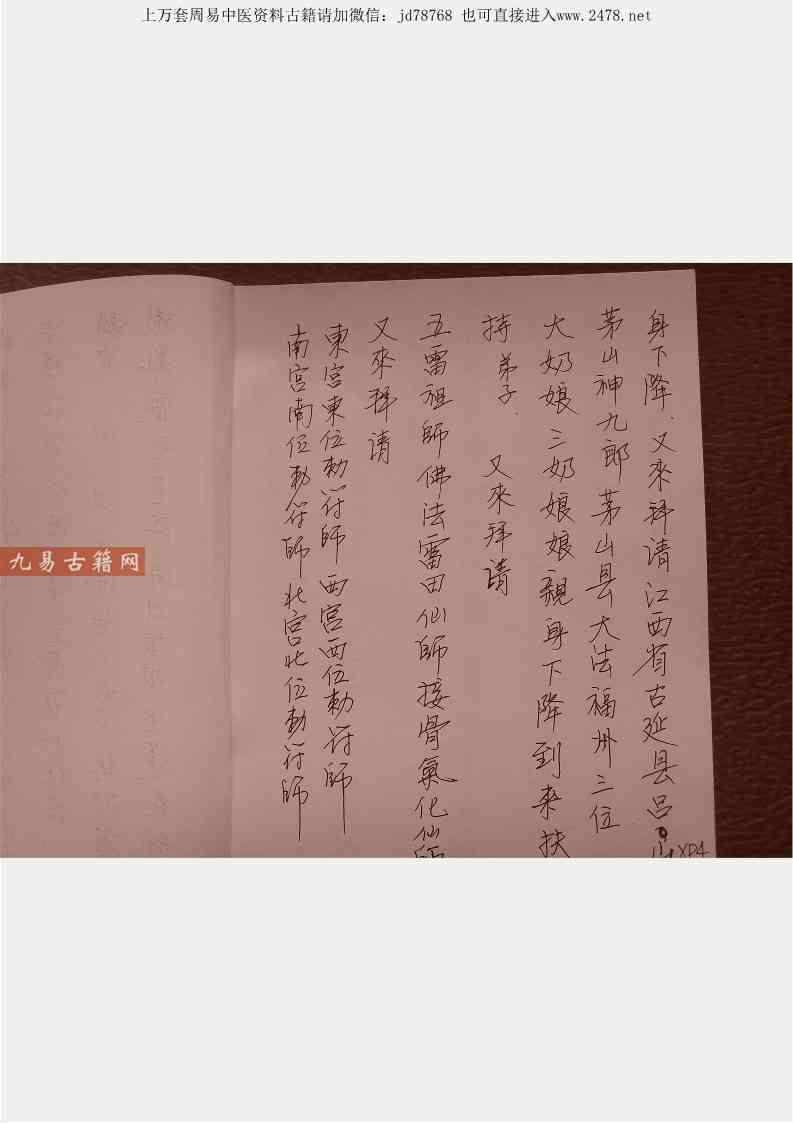 上万套周易中医资料古籍请加微信：jd78768 也可直接进入www.2478.net
身下降．又來拜请江西省古延县吕山
茅山神九郎茅山县大法福州三位
大奶娘三奶娘娘親身下降到来扶
持弟子． 又來拜請
五雷祖師佛法雷田仙師接骨氣化仙師
又來拜请
東宫東位勅符師西宫西位勅符師
南宫南位勅符師北宫北位勅符師
九易古籍网